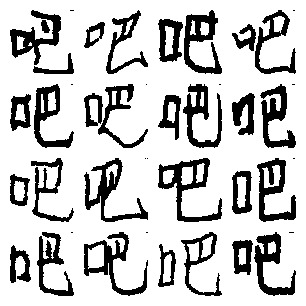 吧吧吧吧
吧吧吧吧
吧吧吧吧
吧吧吧吧